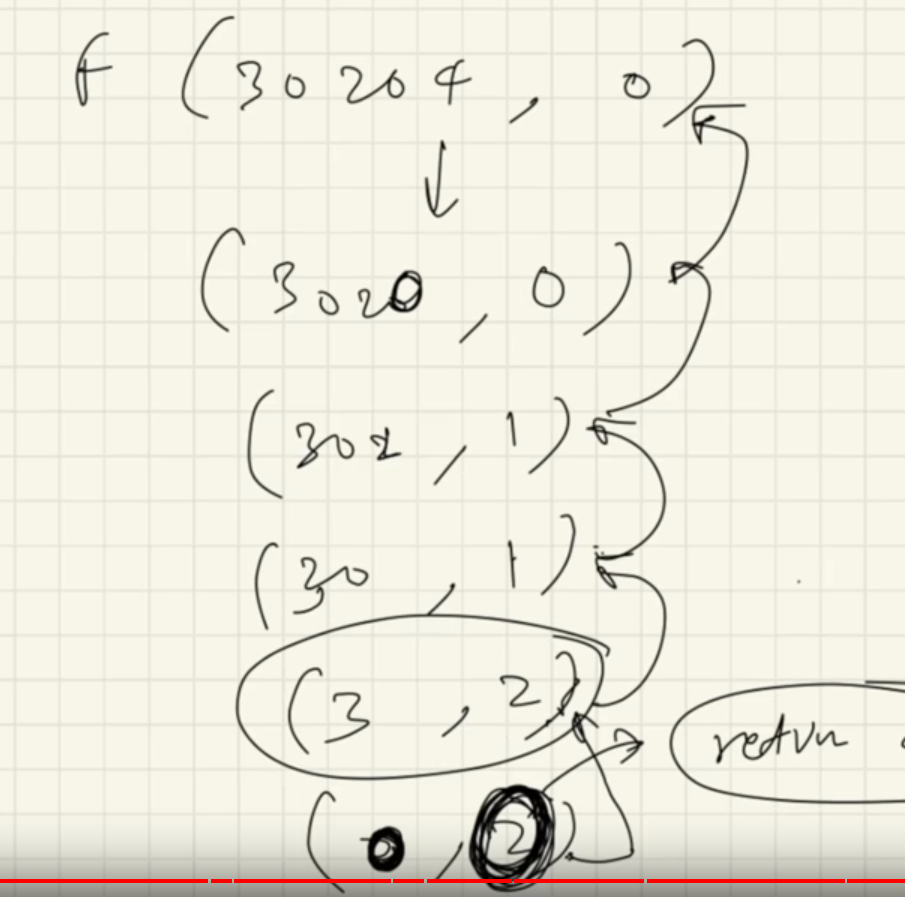 f (30204, 0)
(3020, 0)
(302, 1)
(30, 1)
(3, 2)
(0, 2)
return